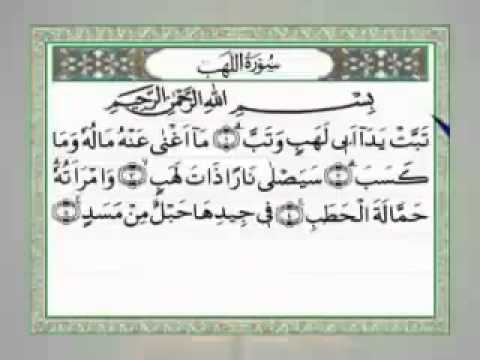 سُوْرَةُ اللَّهَبِ
بِسْمِ اللهِ الرَّحْمٰنِ الرَّحِيْمِ
تَبَّتْ يَدَآ اَبِيْ لَهَبٍ وَتَبَّ ۝١ مَآ اَغْنٰى عَنْهُ مَالُهٗ وَمَا
كَسَبَ ۝٢ سَيَصْلٰى نَارًا ذَاتَ لَهَبٍ ۝٣ وَامْرَاَتُهٗ
حَمَّالَةَ الْحَطَبِ ۝٤ فِيْ جِيْدِهَا حَبْلٌ مِنْ مَسَدٍ ۝٥